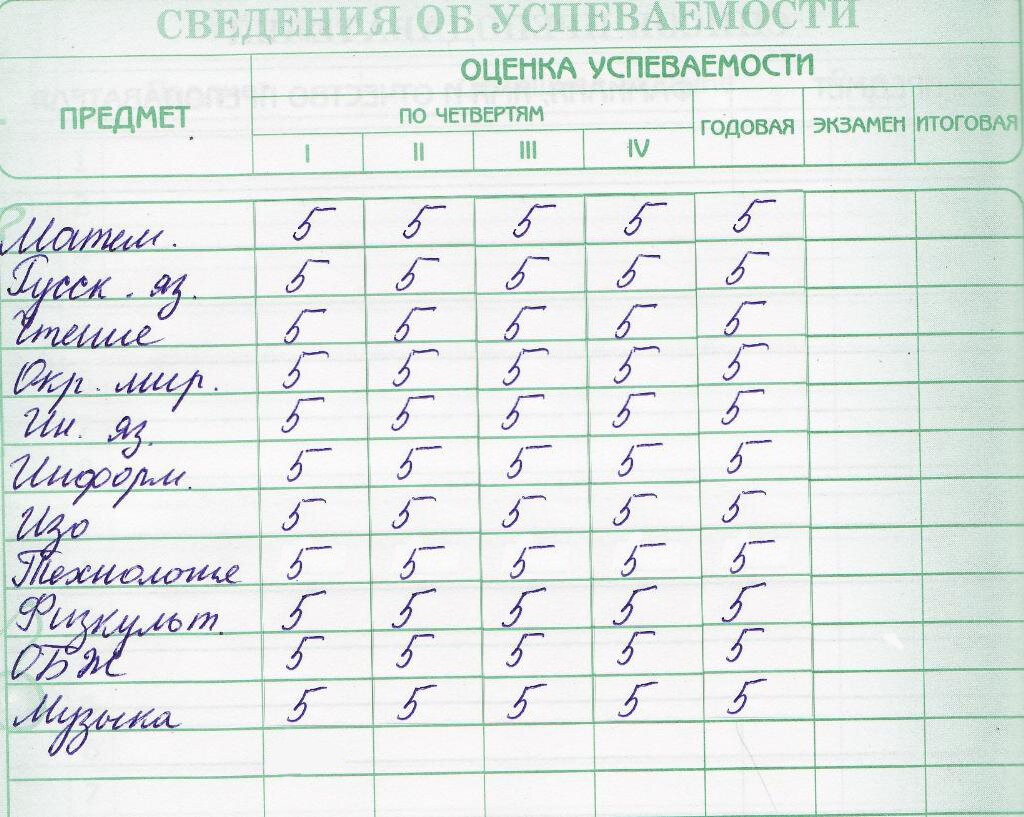 СВЕДЕНИЯ ОБ УСПЕВАЕМОСТИ
ПРЕДМЕТ
ОЦЕНКА УСПЕВАЕМОСТИ
ПО ЧЕТВЕРТЯМ
ГОДОВАЯ ЭКЗАМЕН ИТОГОВАЯ
I II III IV
Матем. 5 5 5 5 5
Русск. яз. 5 5 5 5 5
Чтение 5 5 5 5 5
Окр. мир. 5 5 5 5 5
Ин. яз. 5 5 5 5 5
Информ. 5 5 5 5 5
Изо 5 5 5 5 5
Технология 5 5 5 5 5
Физкульт. 5 5 5 5 5
ОБЖ 5 5 5 5 5
Музыка 5 5 5 5 5